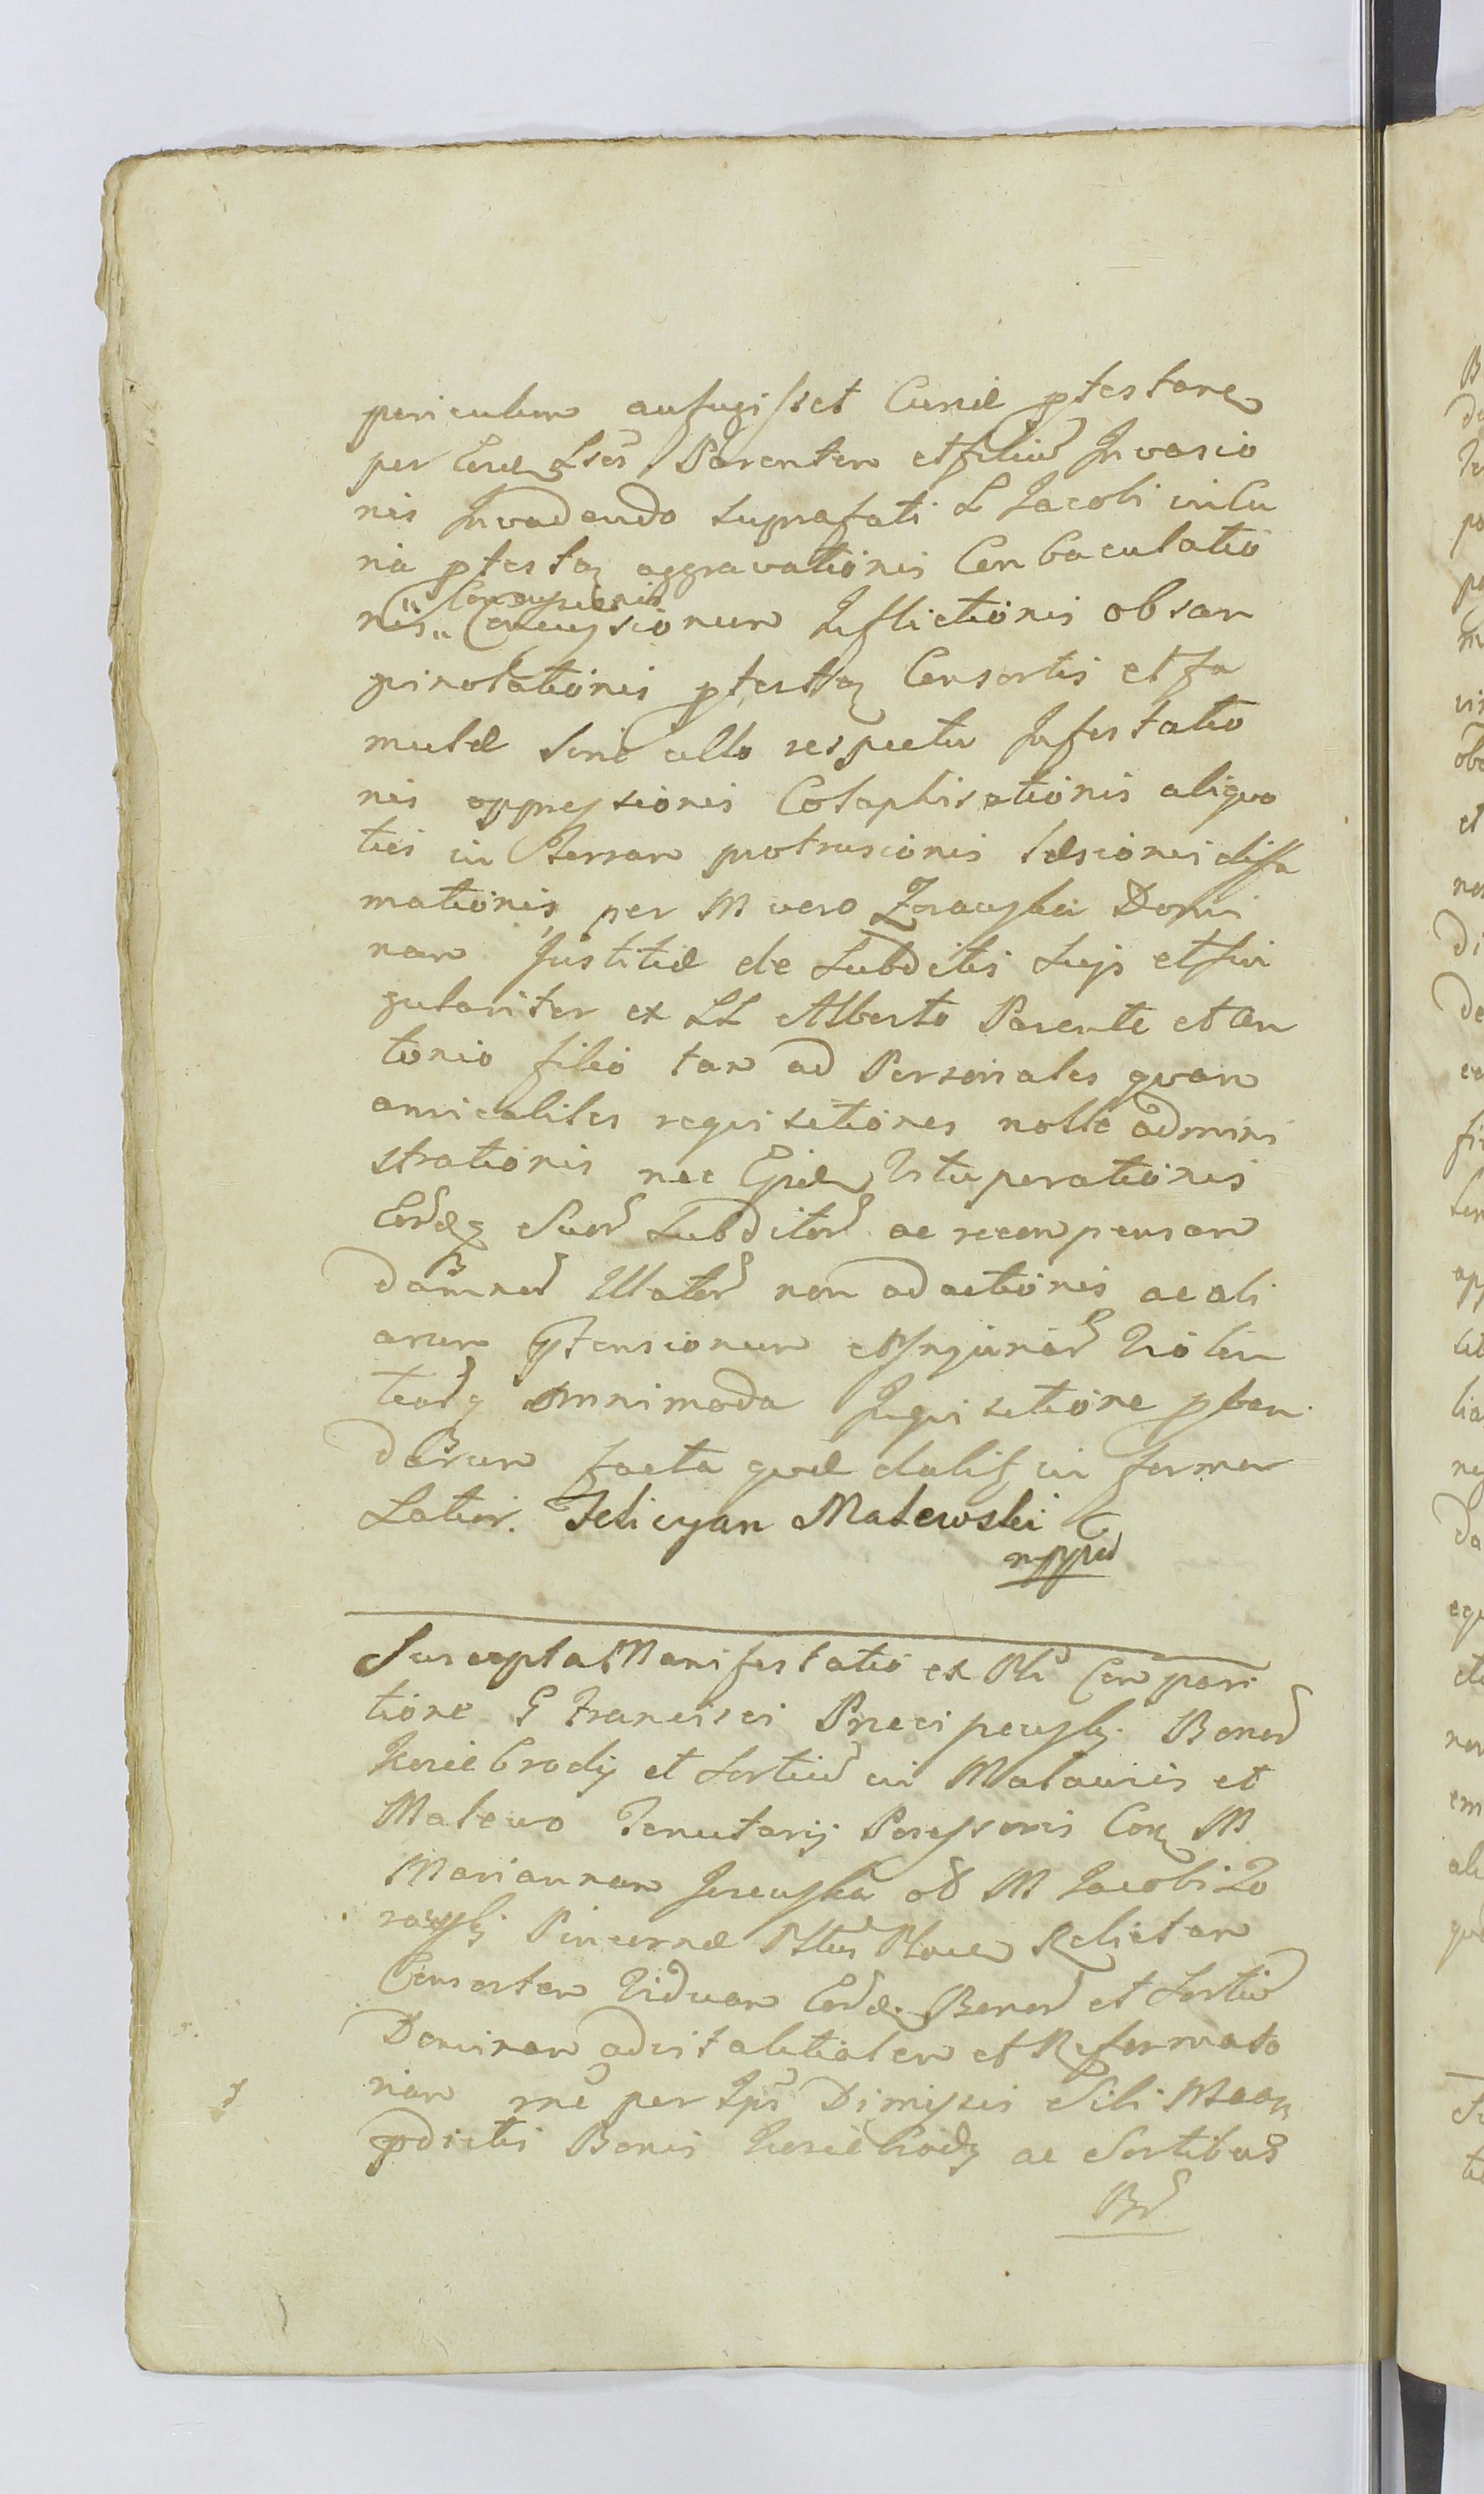 periculum aufugisset Curiæ ptestane
per Eosd Lses Parentem et filiũ Invasio
nis Invadendo suprafati L Jacobi in Cu
ria ptestaz aggravationis Conbaculatio
nis Contusionis
Concussionum Inflictionis obsan
guinolationis ptestaz Consortis et fa
mulæ sine ullo respectu Infestatio
nis oppressionis Colaphisationis aliquo
ties in Terram protrusionis læsionis diffa
mationis, per M vero Zorawska Domi
nam Justitiæ de Subditis suis et sin
gulariter ex LL Alberto Parente et An
tonio filio tam ad Personales quam
amicabiles requisitiones nolle admini
strationis nec Ejusd Vituperationis
Eord Suor Subditor ac recompensam
damnor Illator non adactionis ac ali
arum ptensionum et Injuriar Violen
tiarq Omnimoda Inquisitione pban
darum facta quæ dalisz in forma
Latior. Felicyan Malewski
mppia
Suscepta Manifestatio ex Pbli Compari
tione G Francisci Bonor
et Sortiũ in Malawies et
Malewo Tenutarij Possessoris Cora M
Mariannam M Jacobi Zo
rawski Pincernæ Pltus Plocen Relictam
Consortem Viduam Eord Bonor et Sortiũ
Dominam advitalitialem et Reformato
riam me per Ips Dimissi Sibi
pdictis Bonis ac Sortibus
Br